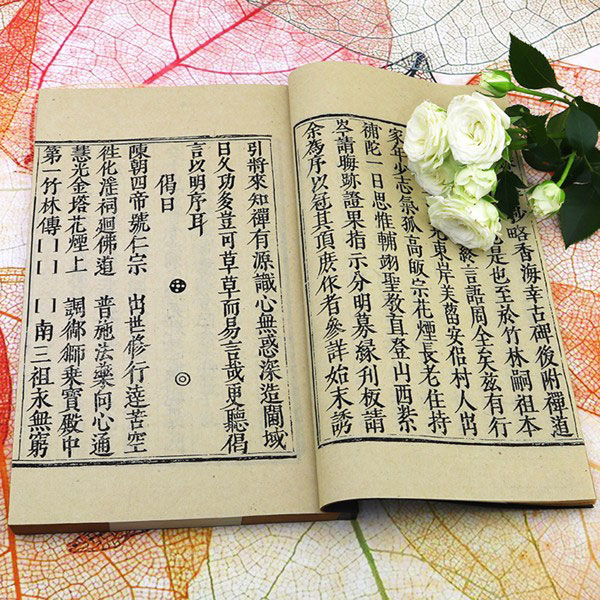 略香海幸古碑後附禪道
是也至於竹林嗣祖本
終言語周全矣茲有行
東岸美蕾安侶村人出
家年少志氣孤高皈宗花煙長老住持
補陀一日思惟輔翊聖教直登山西紫
岺請晦跡證果指示分明募緣刋板請
余為序以冠其頂庶作者參詳始末誘
引將來知禪有源識心無惑深造閫域
日久功多豈可草草而易言哉更聽偈
言以明序耳
偈曰
陳朝四帝號仁宗 出世修行達苦空
徃化淫祠迴佛道 普施法藥向心通
慧光金塔花煙上 調御獅乘寶殿中
第一竹林傳[ ][ ] [ ]南三祖永無窮